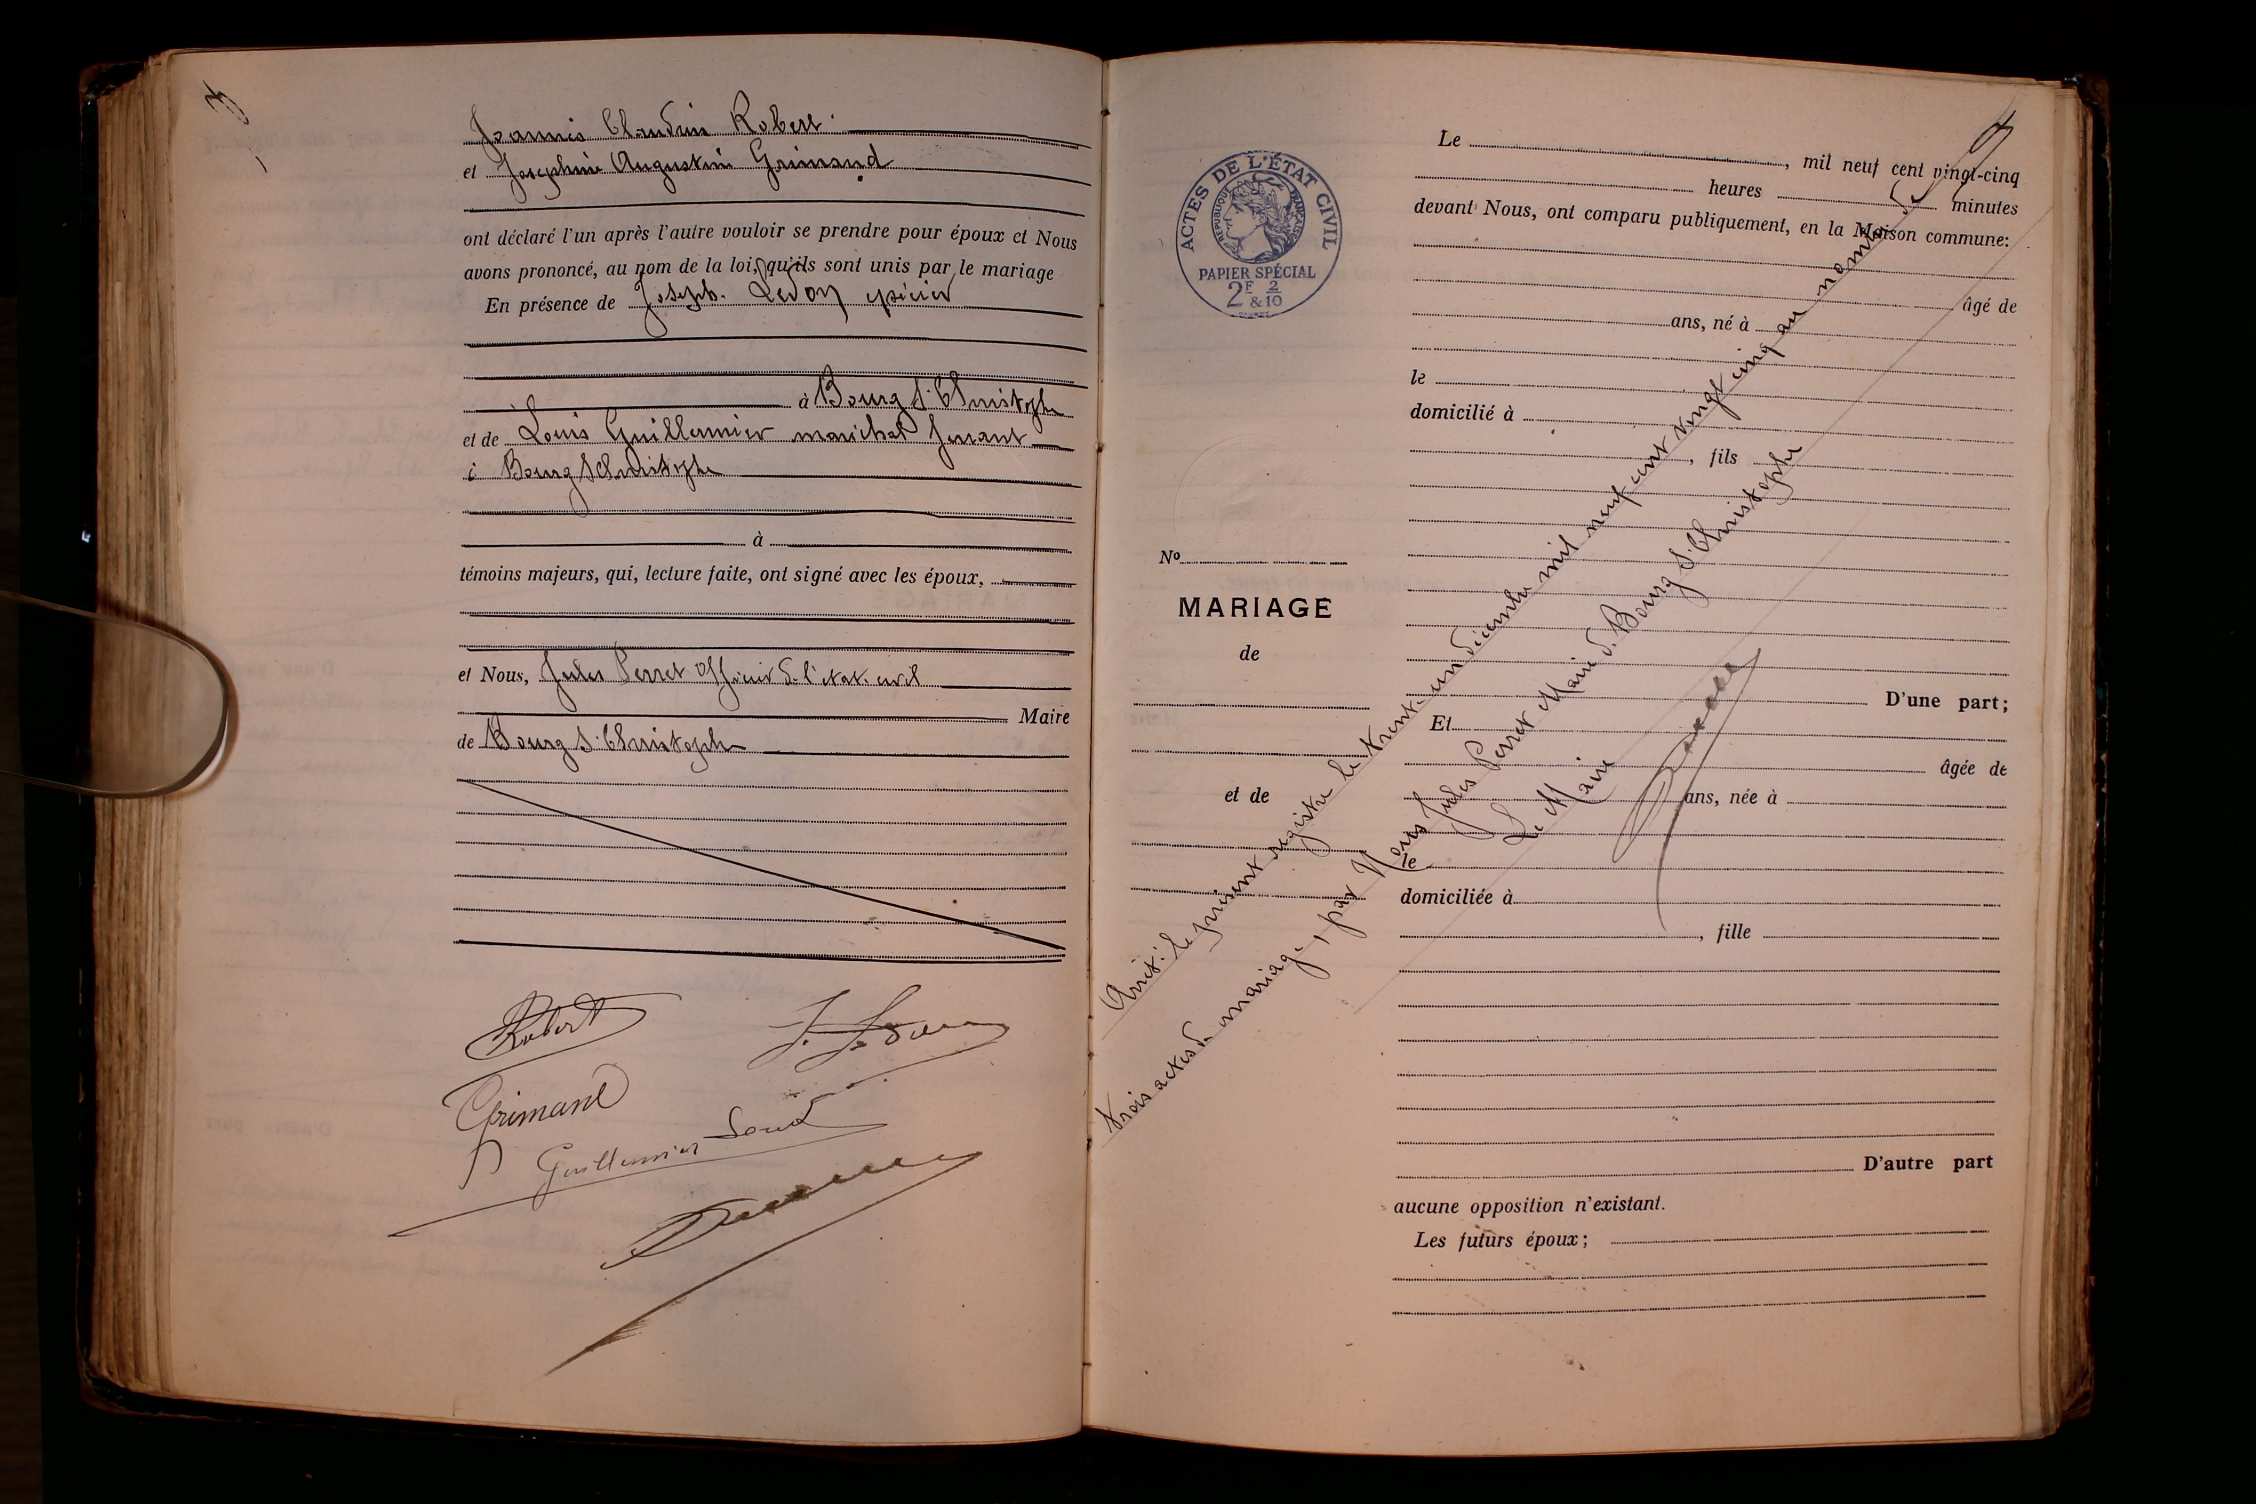 Joannis Claudin Robert
et Josephine Augustine Grimand
ont déclaré l'un après l'autre vouloir se prendre pour époux et Nous
avons prononcé, au nom de la loi, qu'ils sont unis par le mariage
En présence de Joseph Ledon épicier
à Bourg St Christophe
et de Louis Guillaumier maréchal ferrant
à Bourg St Christophe
à
témoins majeurs, qui, lecture faite, ont signé avec les époux,
et Nous, Jules Perret Officier de l'état civil
Maire
de Bourg St Christophe
Robert
Grimand
Guillaumier
ACTES DE L'ÉTAT CIVIL
RÉPUBLIQUE FRANÇAISE
PAPIER SPÉCIAL
2F 2
& 10
No
MARIAGE
de
et de
Le , mil neuf cent vingt-cinq
heures minutes
devant Nous, ont comparu publiquement, en la Maison commune:
âgé de
ans, né à
le
domicilié à
, fils
D'une part;
Et
âgée de
ans, née à
le
domiciliée à
, fille
D'autre part
aucune opposition n'existant.
Les futurs époux;
Arrêté le présent registre le trente un décembre mil neuf cent vingt cinq au nombre de
trois actes de mariage, par Nous Jules Perret Maire de Bourg St Christophe
Le Maire